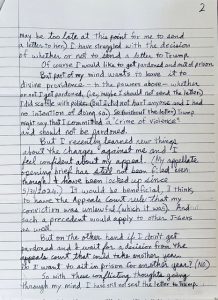 2
may be too late at this point for me to send
a letter to her) I have struggled with the decision
of whether or not to send a letter to Trump.
Of course I would like to get pardoned and out of prison.
But part of my mind wants to leave it to
divine providence - the powers above - whether
or not I get pardoned. (i.e. maybe I should not send the letter)
I did scuffle with police (but I did not hurt anyone and I had
no intention of doing so) Trump
might say that I committed a "crime of violence"
and should not be pardoned.
But I recently learned new things
about the charges against me and I
feel confident about my appeal. (My appellate
opening brief has still not been filed even
though I have been locked up since
It would be beneficial, I think,
to have the Appeals Court rule that my
conviction was unlawful (which it was). And
such a precedent would apply to other J6ers
as well.
But on the other hand if I don't get
pardoned and I wait for a decision from the
appeals court that could take another year.
Do I want to sit in prison for another year? (No)
So with these conflicting thoughts going
through my mind I have still not sent the letter to Trump.